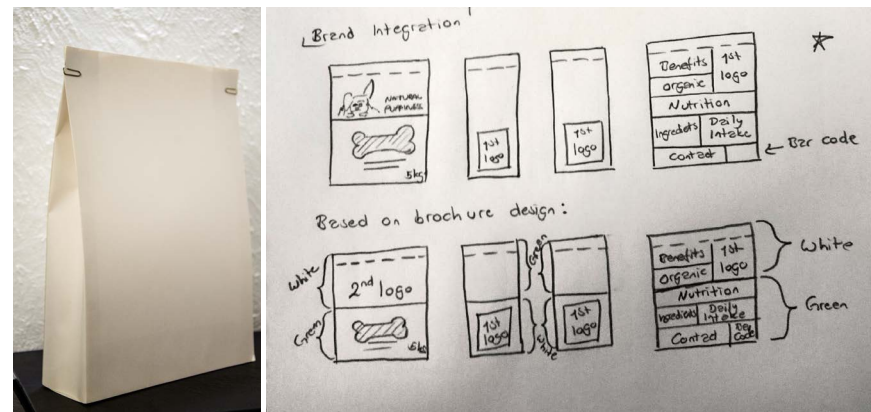 Brand Integration
NATURAL
PUPPINESS
5kg
1st
logo
1st
logo
Benefits
organic
1st
logo
Nutrition
Ingredients
Daily
Intake
Contact
Bar code
Based on brochure design:
White
Green
2nd logo
5kg
1st
logo
Green
White
1st
logo
Benefits
organic
1st
logo
Nutrition
Ingredients
Daily
Intake
Contact
Bar
Code
White
Green